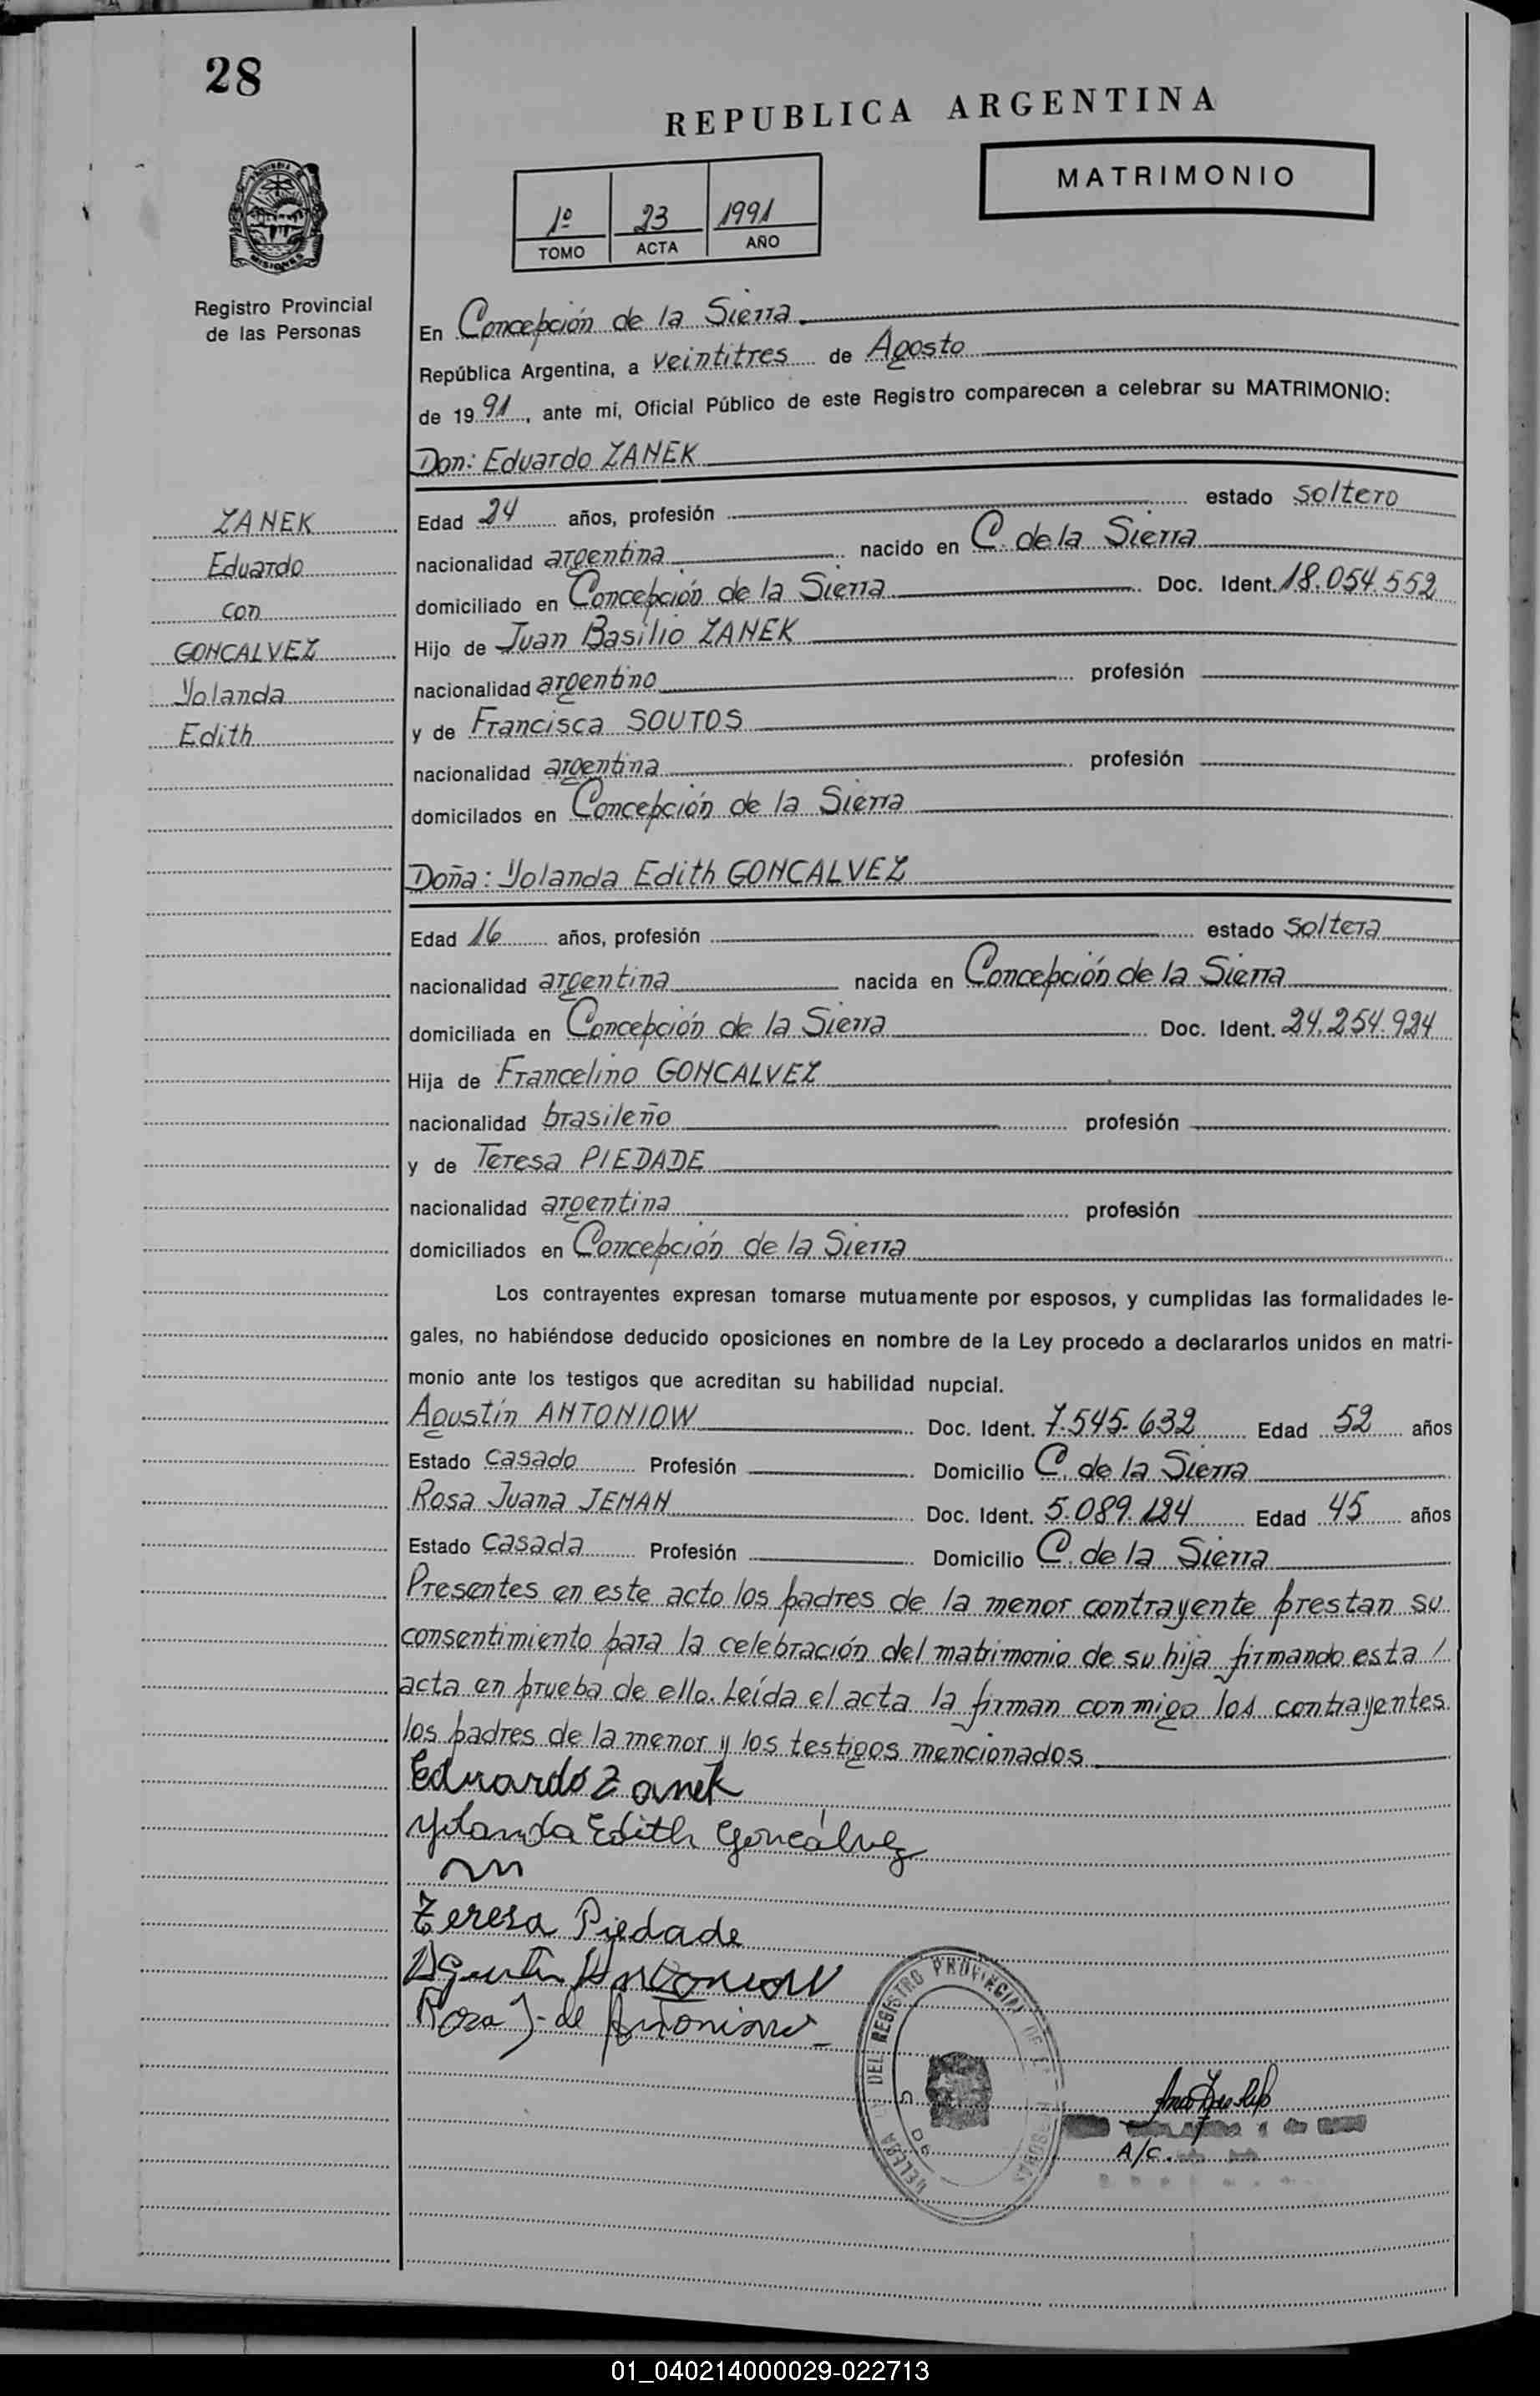 28
REPUBLICA ARGENTINA
MATRIMONIO
1º 23 1991
TOMO ACTA AÑO
PROVINCIA
MISIONES
Registro Provincial
de las Personas
En Concepción de la Sierra
República Argentina, a veintitres de Agosto
de 1991, ante mí, Oficial Público de este Registro comparecen a celebrar su MATRIMONIO:
Don: Eduardo ZANEK
ZANEK
Eduardo
con
GONCALVEZ
Yolanda
Edith
Edad 24 años, profesión estado soltero
nacionalidad argentina nacido en C. de la Sierra
domiciliado en Concepción de la Sierra Doc. Ident. 18.054.552
Hijo de Juan Basilio ZANEK
nacionalidad argentino profesión
y de Francisca SOUTOS
nacionalidad argentina profesión
domicilados en Concepción de la Sierra
Doña: Yolanda Edith GONCALVEZ
Edad 16 años, profesión estado soltera
nacionalidad argentina nacida en Concepción de la Sierra
domiciliada en Concepción de la Sierra Doc. Ident. 24.254.924
Hija de Francelino GONCALVEZ
nacionalidad brasileño profesión
y de Teresa PIEDADE
nacionalidad argentina profesión
domiciliados en Concepción de la Sierra
Los contrayentes expresan tomarse mutuamente por esposos, y cumplidas las formalidades le-
gales, no habiéndose deducido oposiciones en nombre de la Ley procedo a declararlos unidos en matri-
monio ante los testigos que acreditan su habilidad nupcial.
Agustín ANTONIOW Doc. Ident. 7.545.632 Edad 52 años
Estado casado Profesión Domicilio C. de la Sierra
Rosa Juana JENAN Doc. Ident. 5.089.124 Edad 45 años
Estado casada Profesión Domicilio C. de la Sierra
Presentes en este acto los padres de la menor contrayente prestan su
consentimiento para la celebración del matrimonio de su hija firmando esta /
acta en prueba de ello. Leída el acta la firman conmigo los contrayentes
los padres de la menor y los testigos mencionados
Eduardo Zanek
Yolanda Edith Goncálvez
Teresa Piedade
Agustín Antoniow
Rosa J. de Antoniow
DEL REGISTRO PROVINCIAL DE
A/C.
01_040214000029-022713